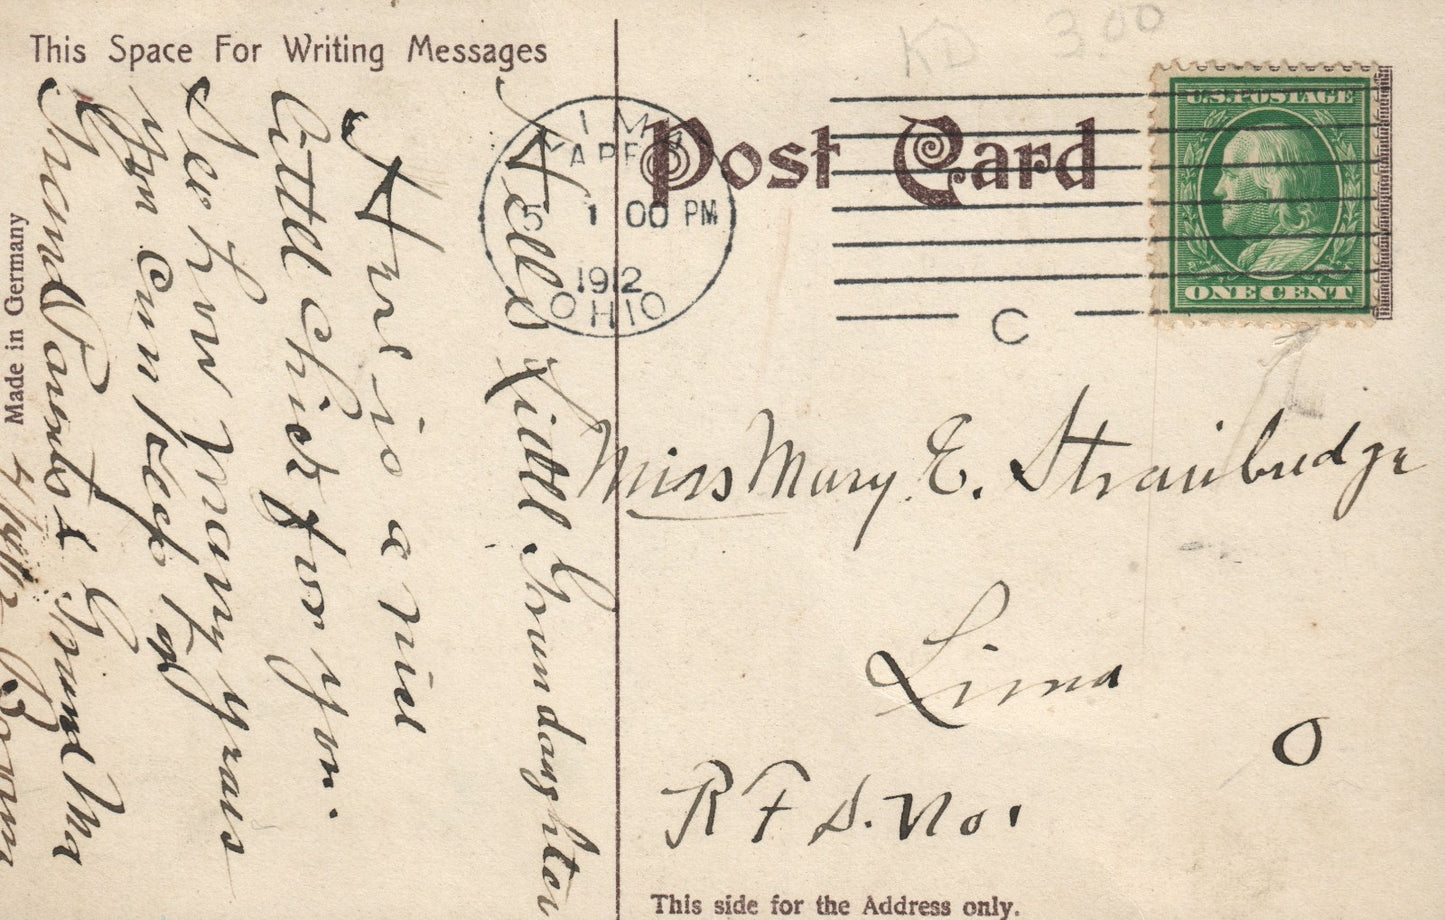 KD 3.00
This Space For Writing Messages
Post Card
U.S. POSTAGE
ONE CENT
LIMA
MAR
5
1 00 PM
1912
OHIO
C
Hello Little Grandaughter
Here is a nice
little chick for you.
See how many years
you can keep it
Grand Parents & Grand Ma
Made in Germany
Miss Mary E. Strawbridge
Lima
O
R F D. No 1
This side for the Address only.